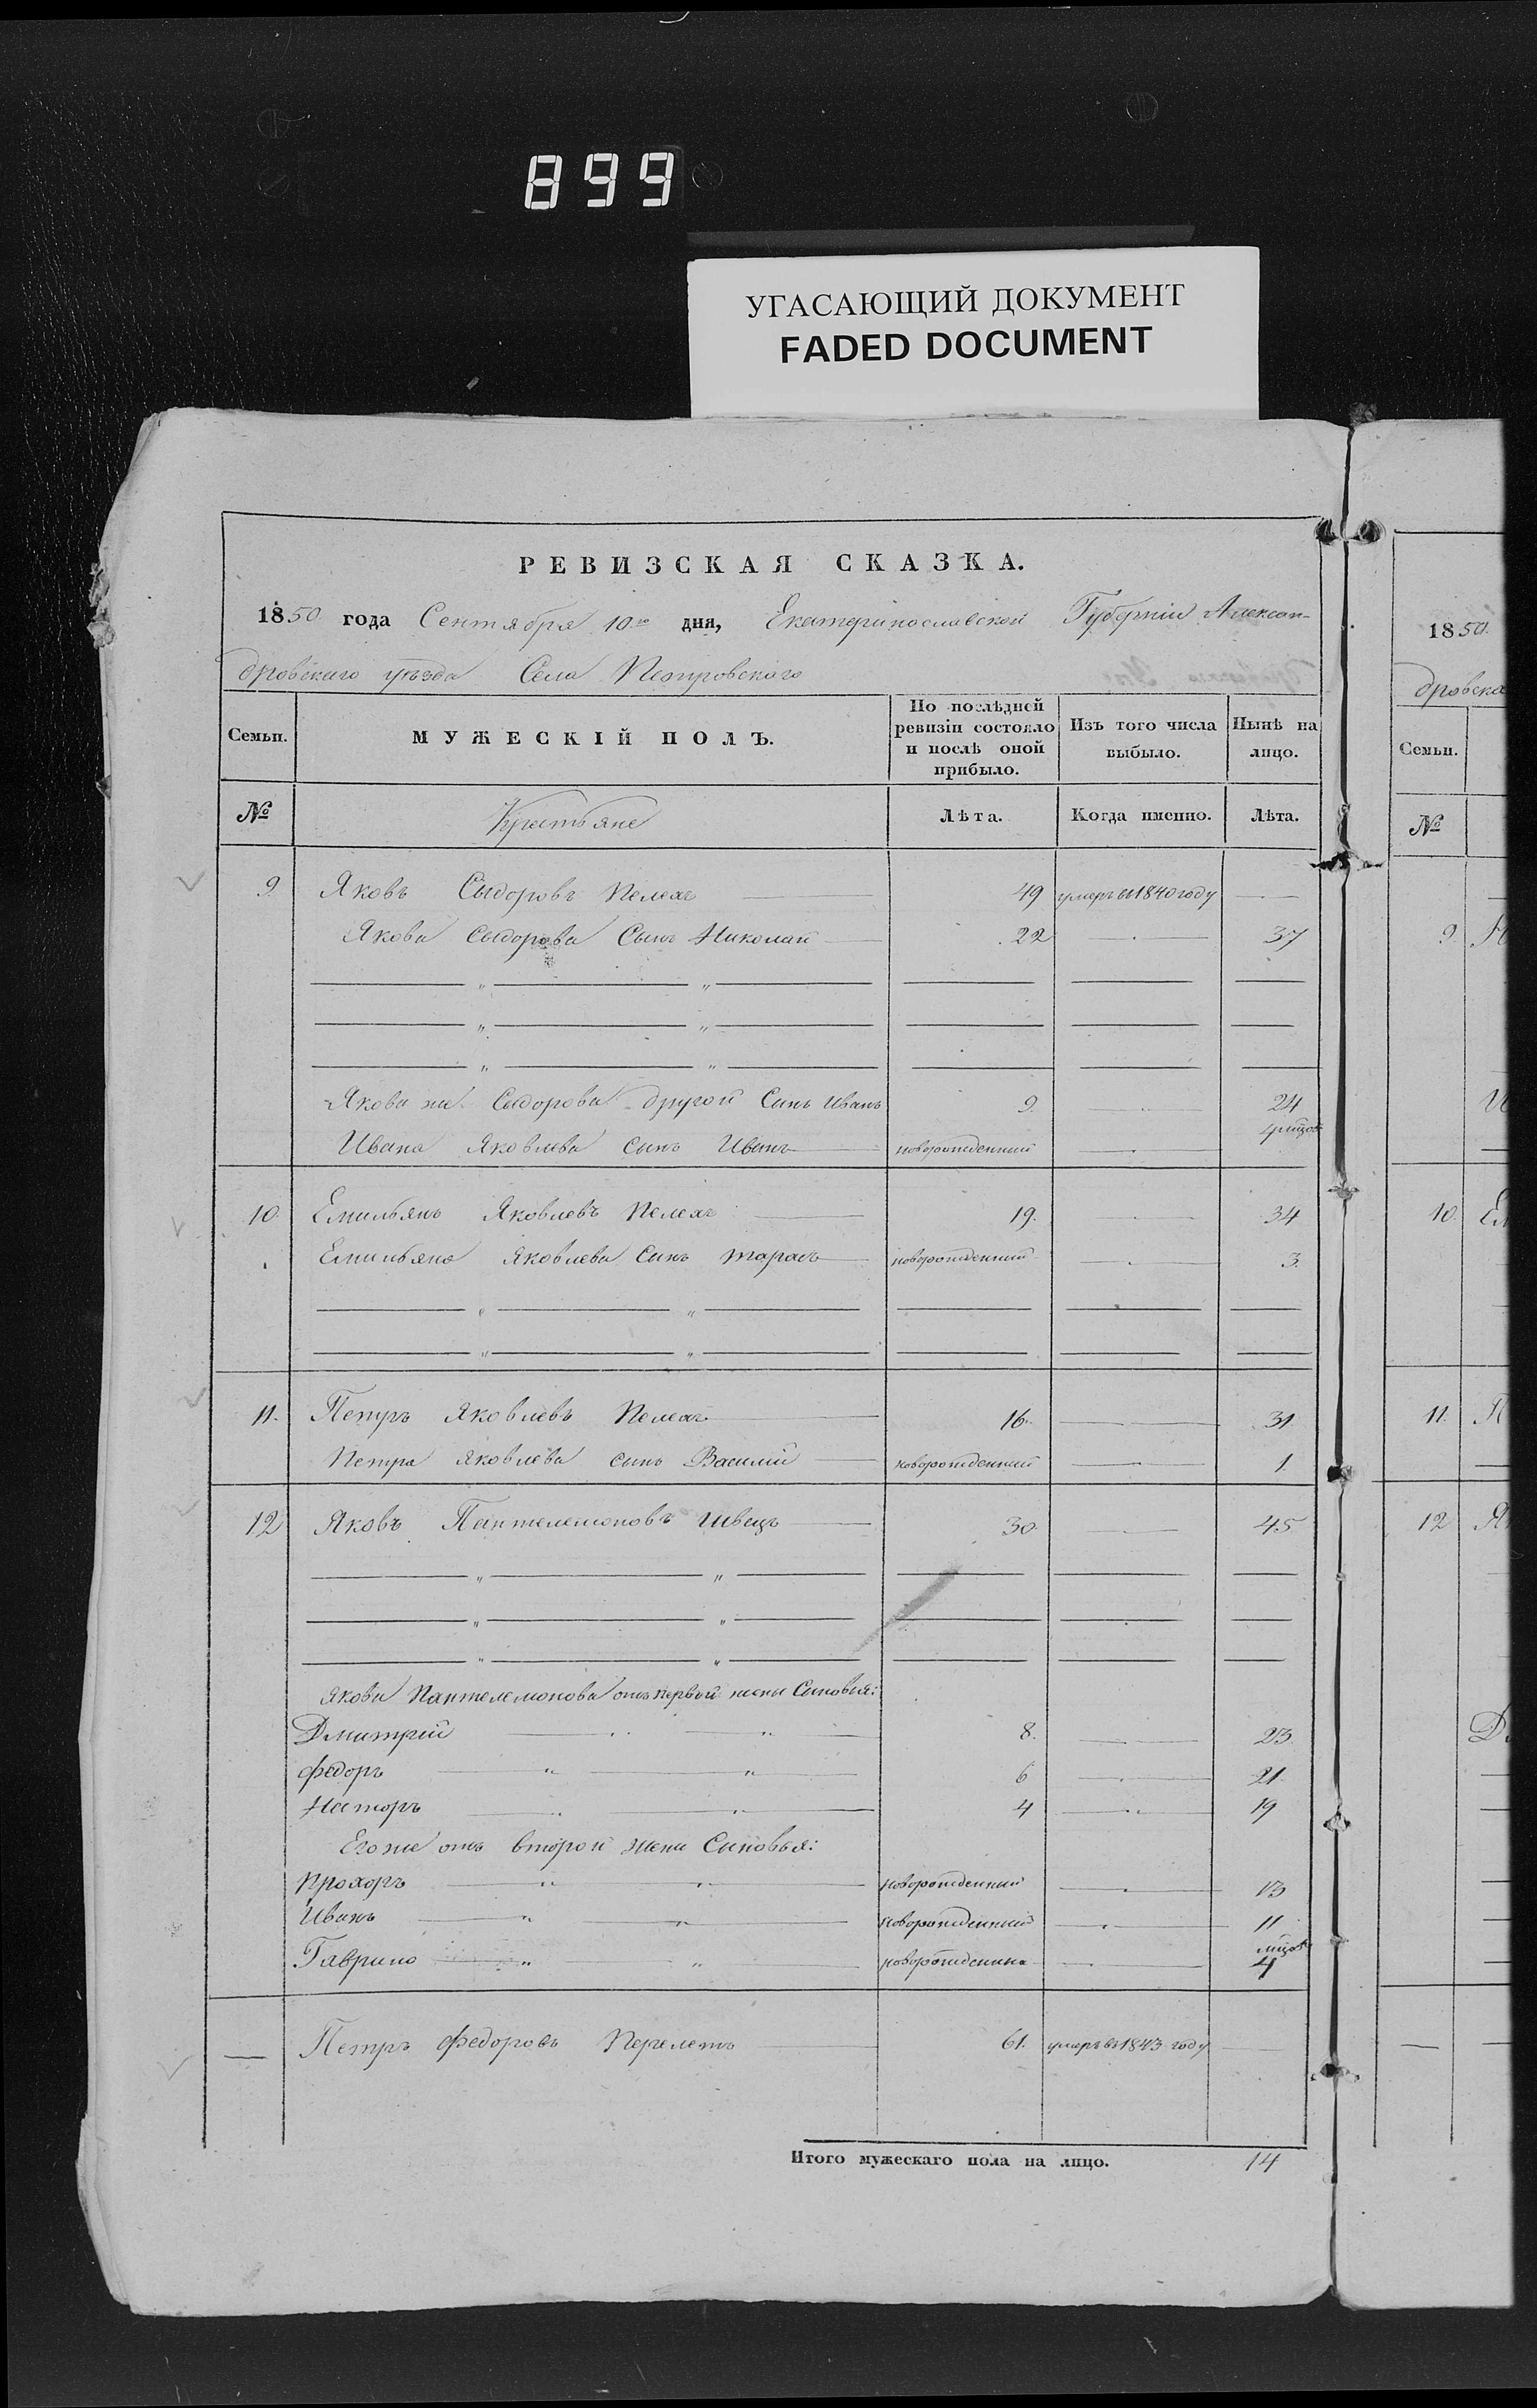 899
УГАСАЮЩИЙ ДОКУМЕНТ
FADED DOCUMENT
РЕВИЗСКАЯ СКАЗКА.
1850 года Сентября 10го дня, Екатеринославской Губерніи Алексан-
дровскаго уѣзда Села Петровскаго
Семьи. МУЖЕСКІЙ ПОЛЪ. По послѣдней ревизіи состояло и послѣ оной прибыло. Изъ того числа выбыло. Нынѣ на лицо.
№ Крестьяне Лѣта. Когда именно. Лѣта.
9. Яковъ Сыдоровъ Пелехъ 49 умеръ въ 1840 году
Якова Сыдорова Сынъ Николай 22 37
Якова же Сыдорова другой Сынъ Иванъ 9. 24
Ивана Яковлева сынъ Иванъ новорожденный
10. Емильянъ Яковлевъ Пелехъ 19. 34
Емильяна Яковлева Сынъ Тарасъ новорожденный 3.
11. Петръ Яковлевъ Пелехъ 16. 31.
Петра Яковлева сынъ Василий новорожденный 1.
12 Яковъ Пантелемоновъ Швецъ 30. 45
Якова Пантелемонова отъ первой жены Сыновья:
Дмитрий 8. 23.
Федоръ 6 21.
Несторъ 4 19
Его же отъ второй жены Сыновья:
Прохоръ новорожденный 13
Иванъ новорожденный 11
Гаврило 4
Петръ Федоровъ Перелетъ 61. умеръ въ 1843 году
Итого мужескаго пола на лицо. 14
1850.
дровска
Семьи.
№
9
10.
11.
12